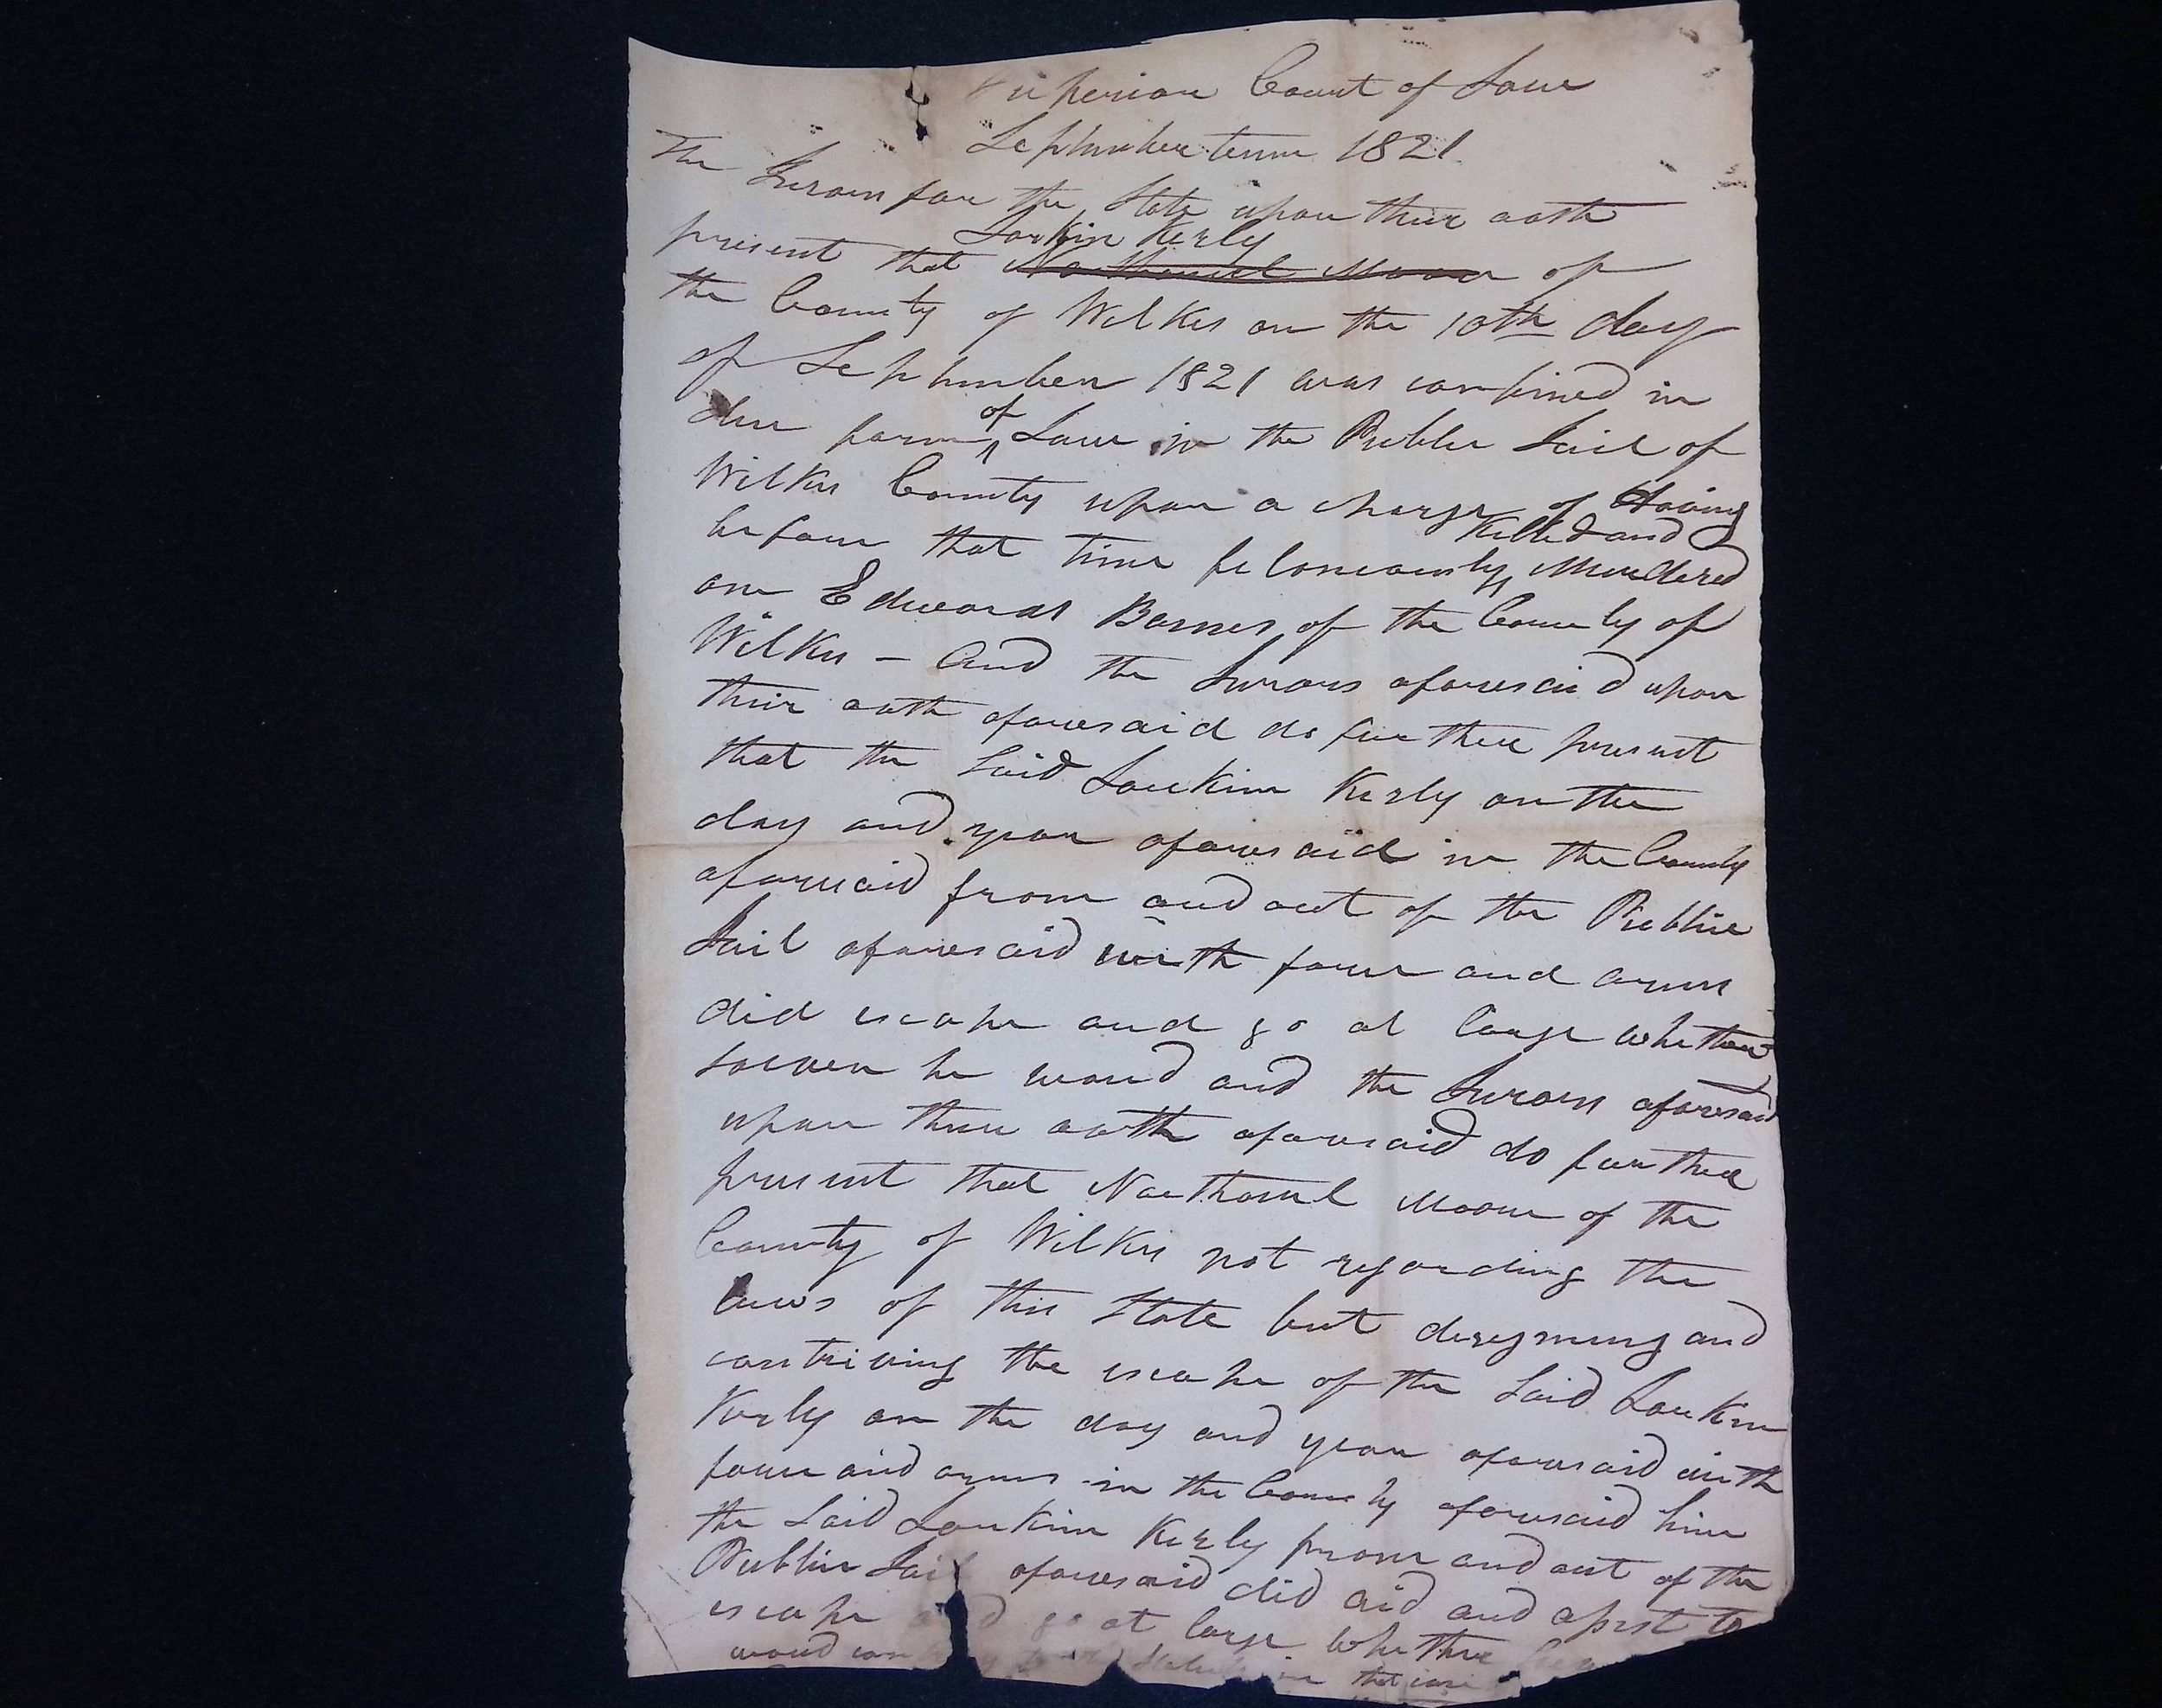 Superior Court of Law
September term 1821
The Jurors for the State upon their oath
Larkin Kerly
present that Nathaniel Moore of
the County of Wilkes on the 10th day
of September 1821 was confined in
due form of Law in the Public Jail of
Wilkes County upon a charge of Having
killed and
before that time feloneously Murdered
one Edward Barnes of the County of
Wilkes – and the Jurors aforesaid upon
their oath aforesaid do further present
that the said Larkin Kerly on the
day and year aforesaid in the County
aforesaid from and out of the Public
Jail aforesaid with force and arms
did escape and go at large whether
soever he would and the Jurors aforesaid
upon their oath aforesaid do further
present that Nathanel Moore of the
County of Wilkes not regarding the
laws of this State but desegning and
contriving the escape of the said Larkin
Kerly on the day and year aforesaid with
force and arms in the County aforesaid him
the said Larkin Kerly from and out of the
Public Jail aforesaid did aid and assist to
escape and go at large whether
would in that case